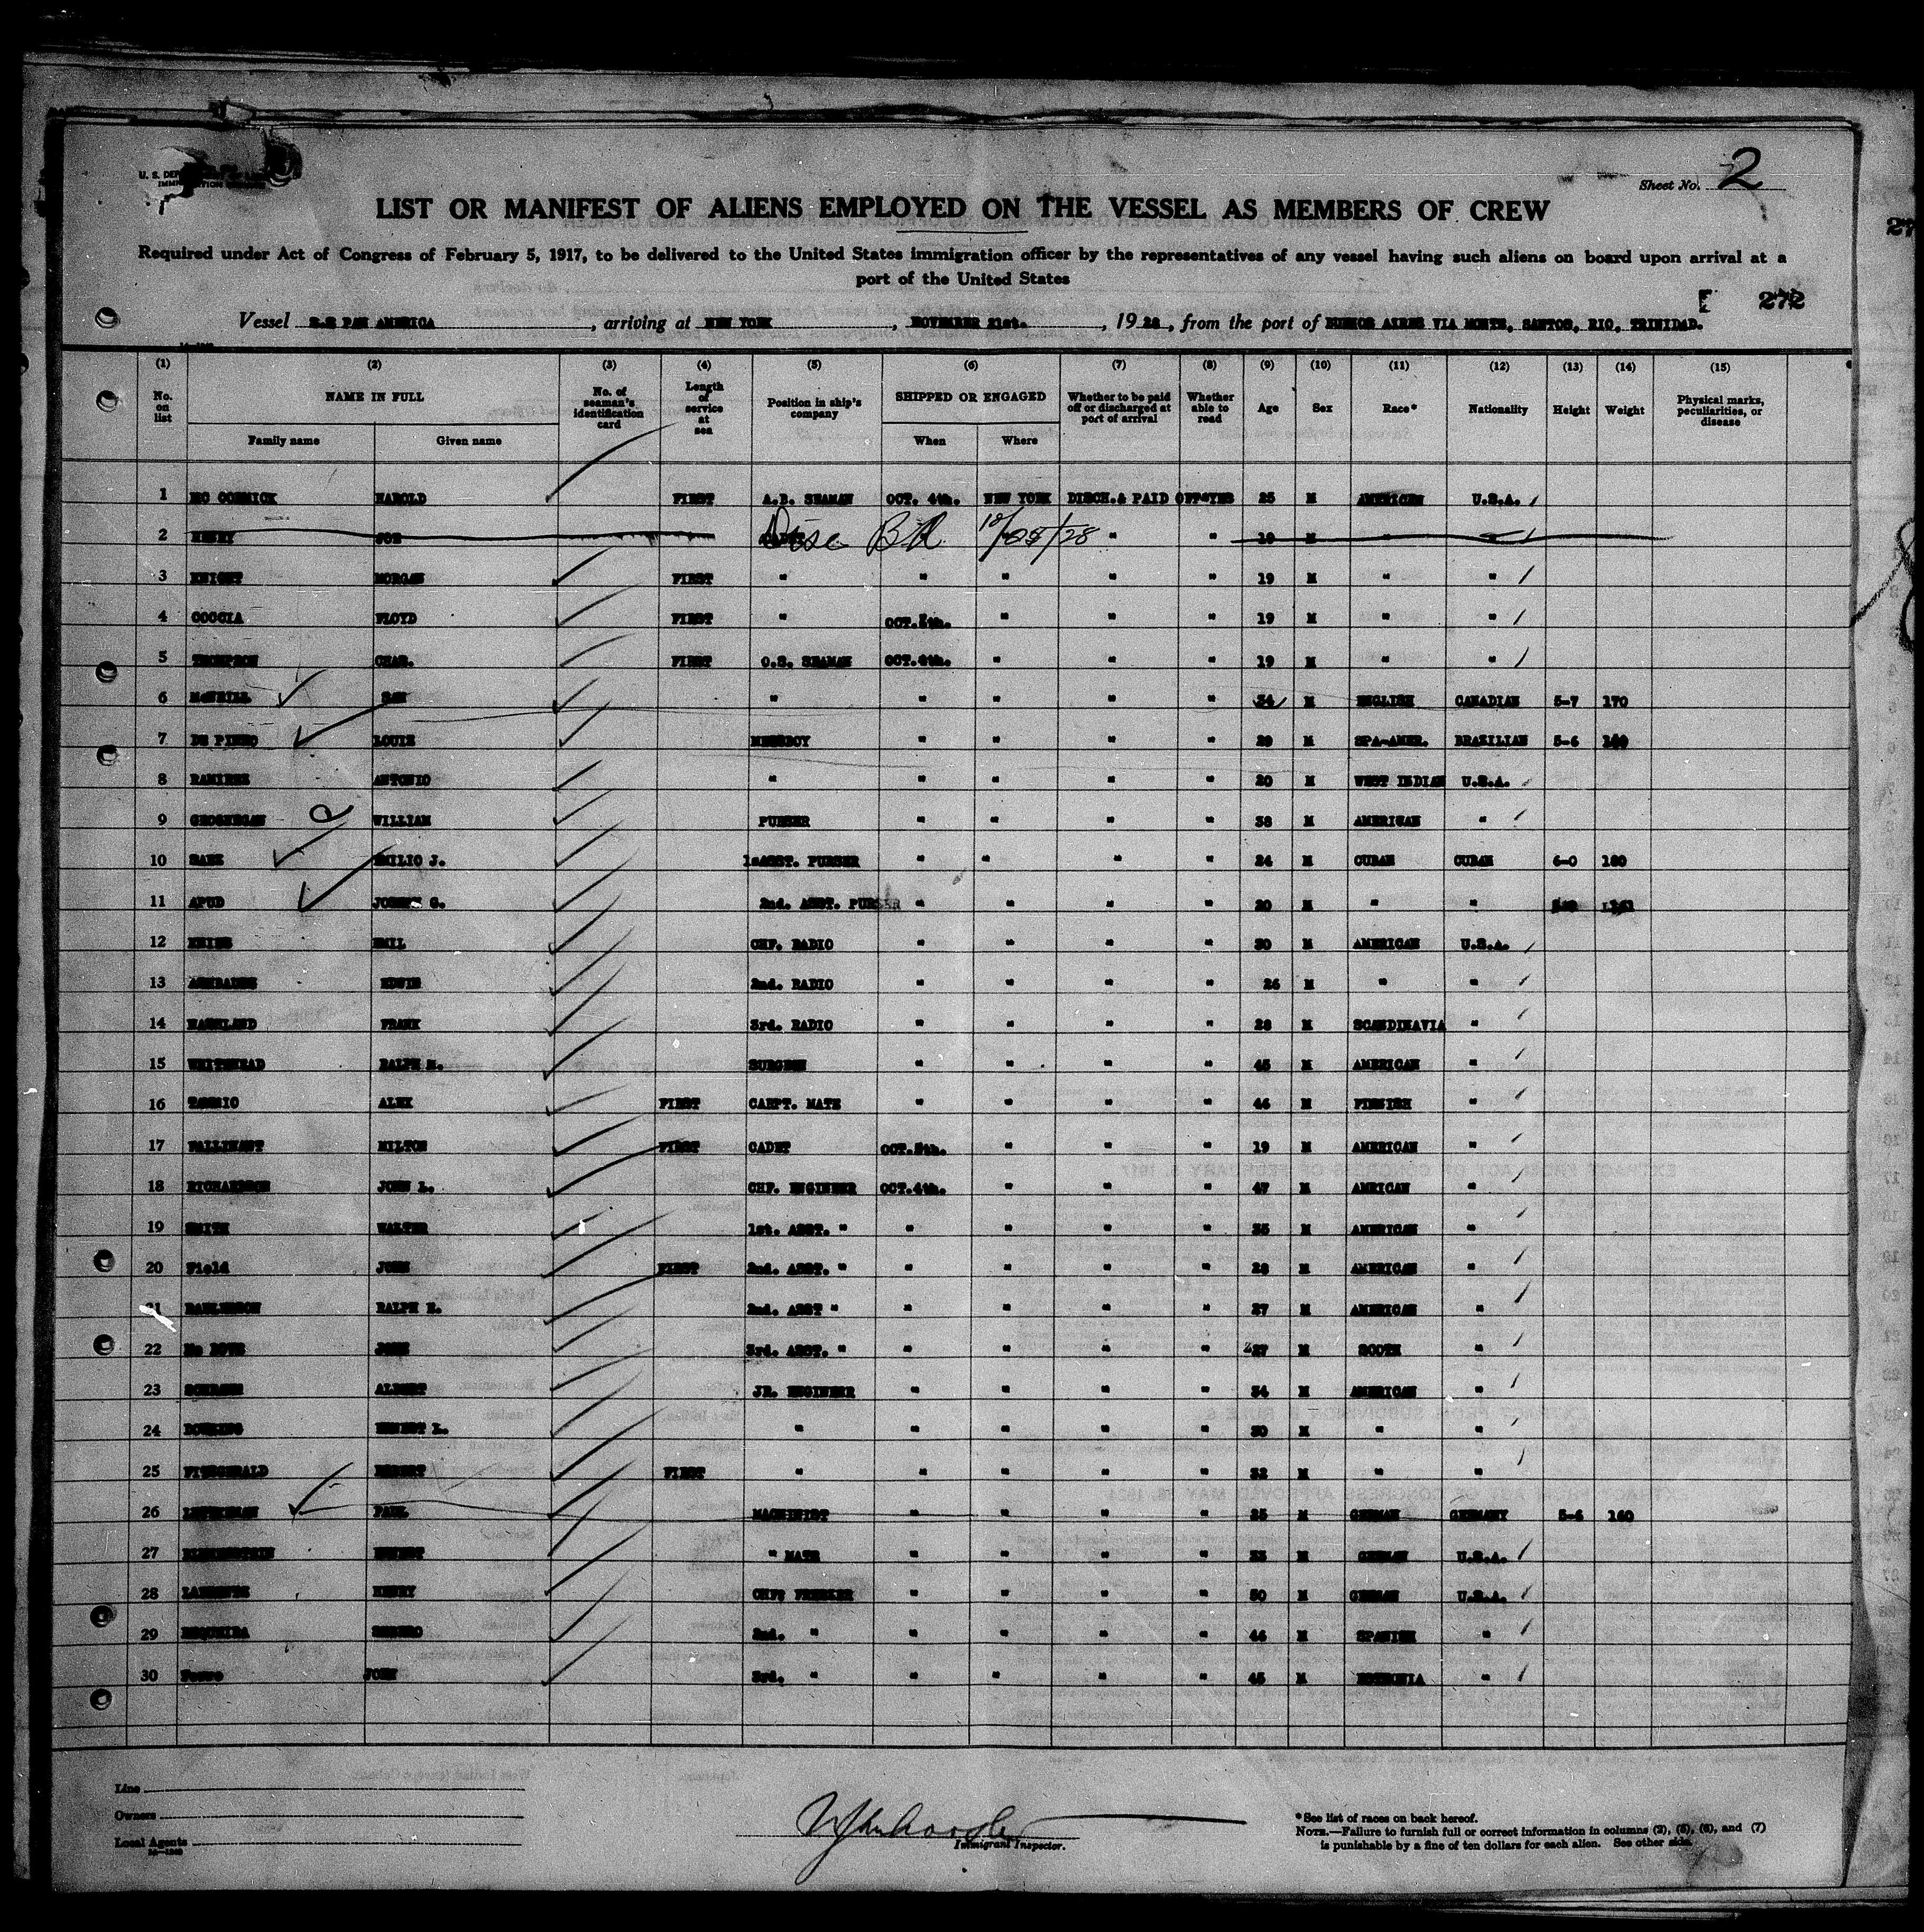 Sheet No. 2
LIST OR MANIFEST OF ALIENS EMPLOYED ON THE VESSEL AS MEMBERS OF CREW
Required under Act of Congress of February 5, 1917, to be delivered to the United States immigration officer by the representatives of any vessel having such aliens on board upon arrival at a
port of the United States
272
Vessel S.S PAN AMERICA, arriving at NEW YORK, NOVEMBER 21st., 1928, from the port of BUENOS AIRES VIA MONTE, SANTOS, RIO, TRINIDAD.
(1) (2) (3) (4) (5) (6) (7) (8) (9) (10) (11) (12) (13) (14) (15)
No. on list NAME IN FULL No. of seaman's identification card Length of service at sea Position in ship's company SHIPPED OR ENGAGED Whether to be paid off or discharged at port of arrival Whether able to read Age Sex Race* Nationality Height Weight Physical marks, peculiarities, or disease
Family name Given name When Where
1 MC CORMICK HAROLD FIRST A.B. SEAMAN OCT. 4th. NEW YORK DISCH.& PAID OFF YES 25 M AMERICAN U.S.A.
2 HENRY JOE Disc BA 10/05/28 " " 19 M " "
3 KNIGHT MORGAN FIRST " " " " " 19 M " "
4 COCCIA FLOYD FIRST " OCT.5th. " " " 19 M " "
5 THOMPSON CHAS. FIRST O.S. SEAMAN OCT.4th. " " " 19 M " "
6 McNEILL SAM " " " " " 34 M ENGLISH CANADIAN 5-7 170
7 DE PINHO LOUIE MESSBOY " " " " 29 M SPA-AMER. BRAZILIAN 5-6
8 RAMIREZ ANTONIO " " " " " 20 M WEST INDIAN U.S.A.
9 GEOGHEGAN WILLIAM PURSER " " " " 38 M AMERICAN "
10 SAEZ EMILIO J. 1stASST. PURSER " " " " 24 M CUBAN CUBAN 6-0 180
11 APUD JOSEPH G. 2nd. ASST. PURSER " " " " 20 M " "
12 EMIL CHF. RADIO " " " " 30 M AMERICAN U.S.A.
13 EDWIN 2nd. RADIO " " " " 26 M " "
14 FRANK 3rd. RADIO " " " " 28 M SCANDINAVIA "
15 WHITEHEAD RALPH M. SURGEON " " " " 45 M AMERICAN "
16 ALEX FIRST CARPT. MATE " " " " 46 M FINNISH "
17 MILTON FIRST CADET OCT.5th. " " " 19 M AMERICAN "
18 RICHARDSON JOHN L. CHF. ENGINEER OCT.4th. " " " 47 M AMRICAN "
19 SMITH WALTER 1st. ASST. " " " " " 35 M AMERICAN "
20 Field JOHN FIRST 2nd. ASST. " " " " " 28 M AMERICAN "
21 RALPH E. 2nd. ASST " " " " " 27 M AMERICAN "
22 JOHN 3rd. ASST. " " " " " 27 M SCOTH "
23 ALBERT JR. ENGINEER " " " " 34 M AMERICAN "
24 ERNEST L. " " " " " 30 M " "
25 FITZGERALD ROBERT FIRST " " " " " 32 M " "
26 PAUL MACHINIST " " " " 25 M GERMAN GERMANY 5-6 160
27 ERNEST " MATE " " " " 33 M GERMAN U.S.A.
28 HENRY " " " " 50 M GERMAN U.S.A.
29 2nd. " " " " " 44 M SPANISH "
30 JOHN 3rd. " " " " " 45 M ESTHONIA "
Line
Owners
Local Agents
Immigrant Inspector.
*See list of races on back hereof.
NOTE.—Failure to furnish full or correct information in columns (2), (5), (6), and (7)
is punishable by a fine of ten dollars for each alien. See other side.